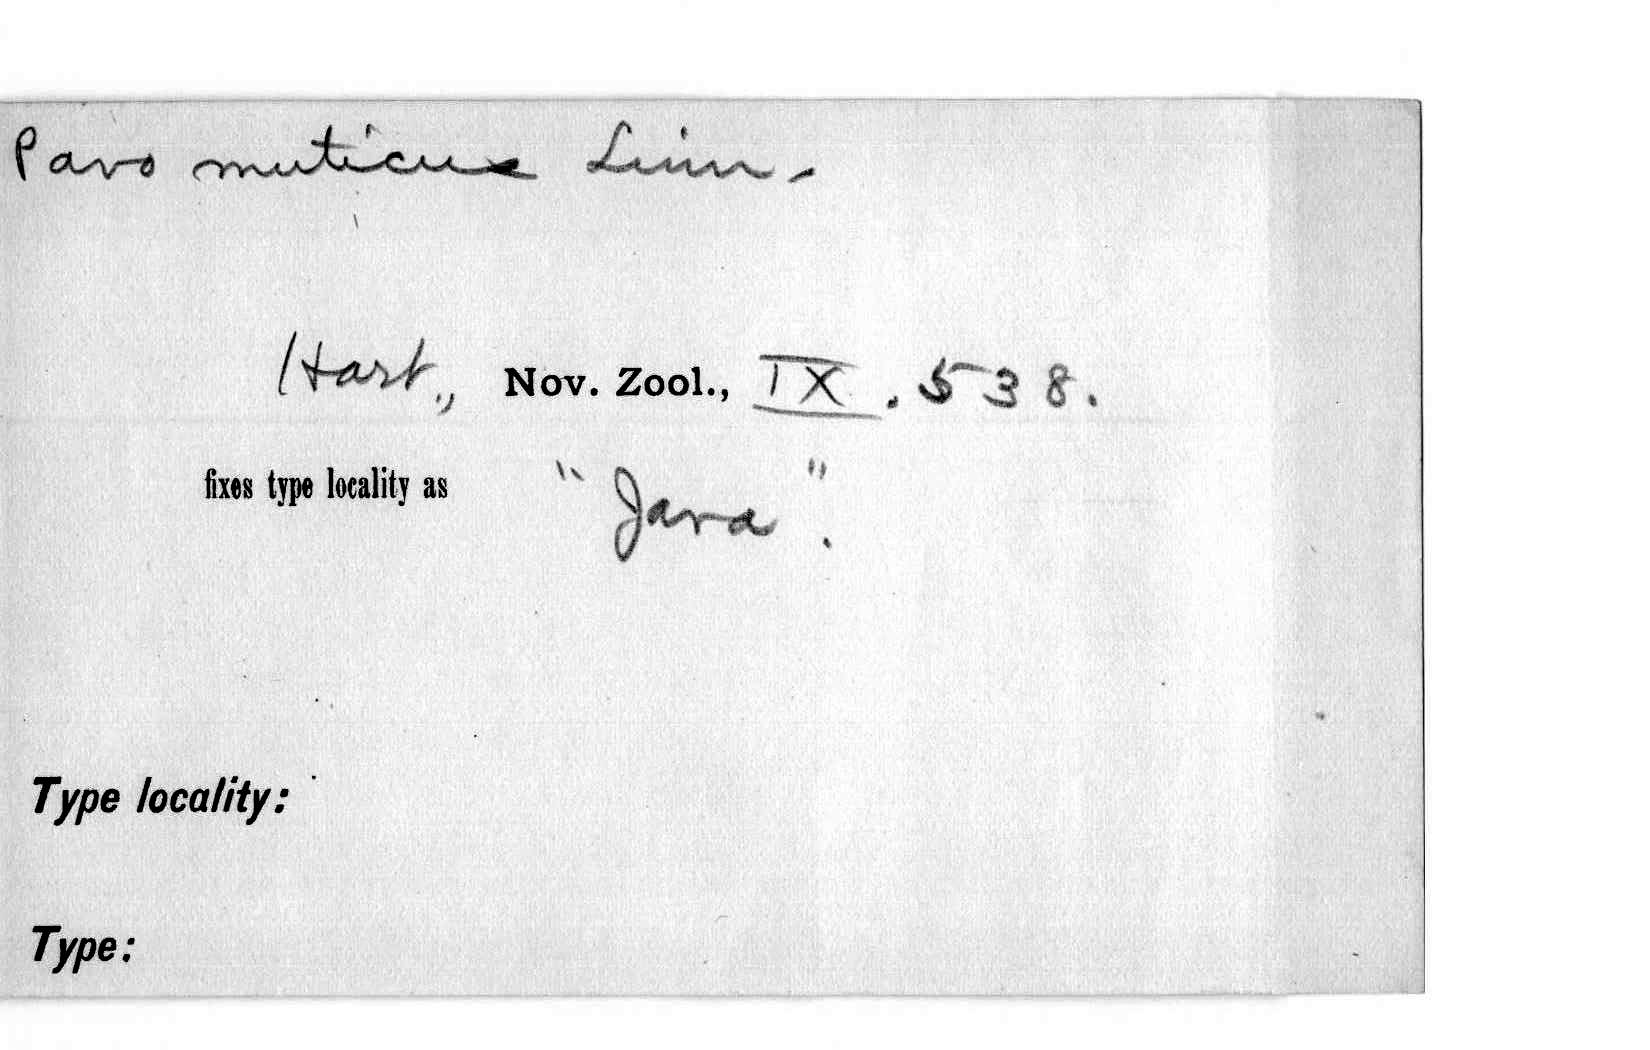 Pavo muticus Linn.
Hart., Nov. Zool., IX. 538.
fixes type locality as "Java".
Type locality:
Type: